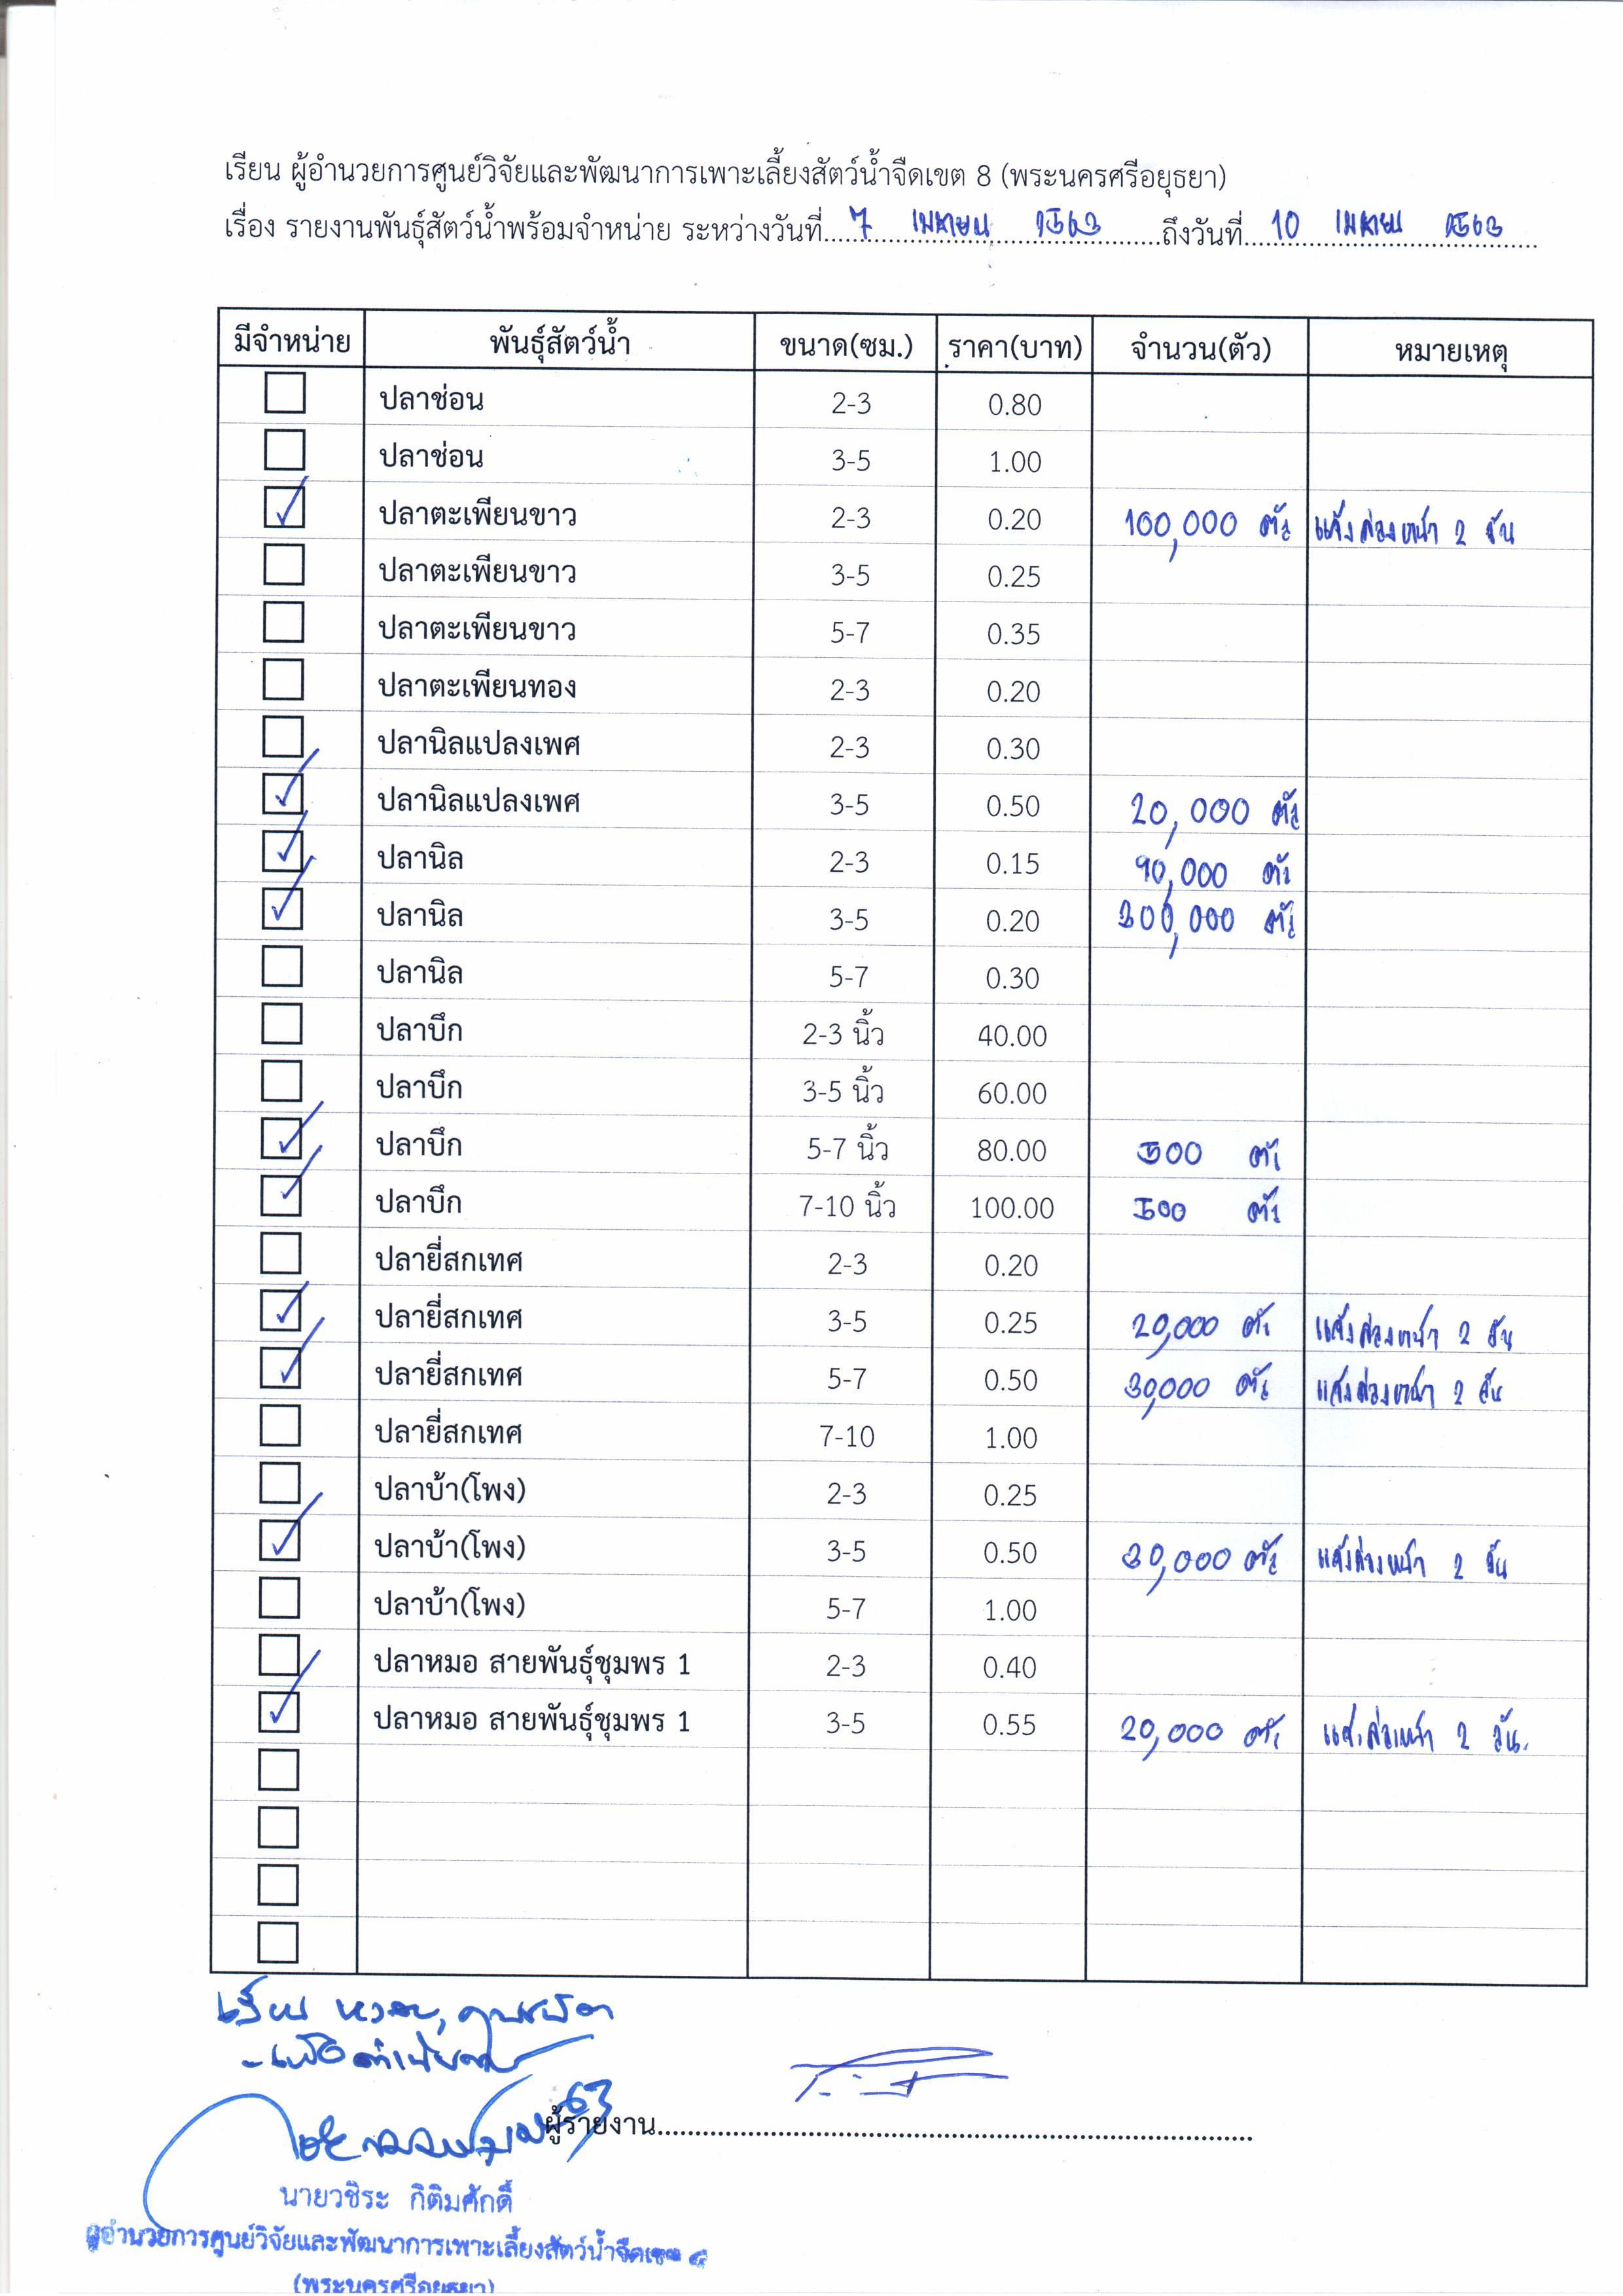 เรียน ผู้อำนวยการศูนย์วิจัยและพัฒนาการเพาะเลี้ยงสัตว์น้ำจืดเขต 8 (พระนครศรีอยุธยา)
เรื่อง รายงานพันธุ์สัตว์น้ำพร้อมจำหน่าย ระหว่างวันที่ 7 เมษายน 2563 ถึงวันที่ 10 เมษายน 2563
มีจำหน่าย พันธุ์สัตว์น้ำ ขนาด(ซม.) ราคา(บาท) จำนวน(ตัว) หมายเหตุ
ปลาช่อน 2-3 0.80
ปลาช่อน 3-5 1.00
✓ ปลาตะเพียนขาว 2-3 0.20 100,000 ตัว แจ้งล่วงหน้า 2 วัน
ปลาตะเพียนขาว 3-5 0.25
ปลาตะเพียนขาว 5-7 0.35
ปลาตะเพียนทอง 2-3 0.20
ปลานิลแปลงเพศ 2-3 0.30
✓ ปลานิลแปลงเพศ 3-5 0.50 20,000 ตัว
✓ ปลานิล 2-3 0.15 90,000 ตัว
✓ ปลานิล 3-5 0.20 300,000 ตัว
ปลานิล 5-7 0.30
ปลาบึก 2-3 นิ้ว 40.00
ปลาบึก 3-5 นิ้ว 60.00
✓ ปลาบึก 5-7 นิ้ว 80.00 500 ตัว
✓ ปลาบึก 7-10 นิ้ว 100.00 500 ตัว
ปลายี่สกเทศ 2-3 0.20
✓ ปลายี่สกเทศ 3-5 0.25 20,000 ตัว แจ้งล่วงหน้า 2 วัน
✓ ปลายี่สกเทศ 5-7 0.50 30,000 ตัว แจ้งล่วงหน้า 2 วัน
ปลายี่สกเทศ 7-10 1.00
ปลาบ้า(โพง) 2-3 0.25
✓ ปลาบ้า(โพง) 3-5 0.50 30,000 ตัว แจ้งล่วงหน้า 2 วัน
ปลาบ้า(โพง) 5-7 1.00
ปลาหมอ สายพันธุ์ชุมพร 1 2-3 0.40
✓ ปลาหมอ สายพันธุ์ชุมพร 1 3-5 0.55 20,000 ตัว แจ้งล่วงหน้า 2 วัน
เรียน
ผู้รายงาน
นายวชิระ กิติมศักดิ์
ผู้อำนวยการศูนย์วิจัยและพัฒนาการเพาะเลี้ยงสัตว์น้ำจืดเขต ๘
(พระนครศรีอยุธยา)